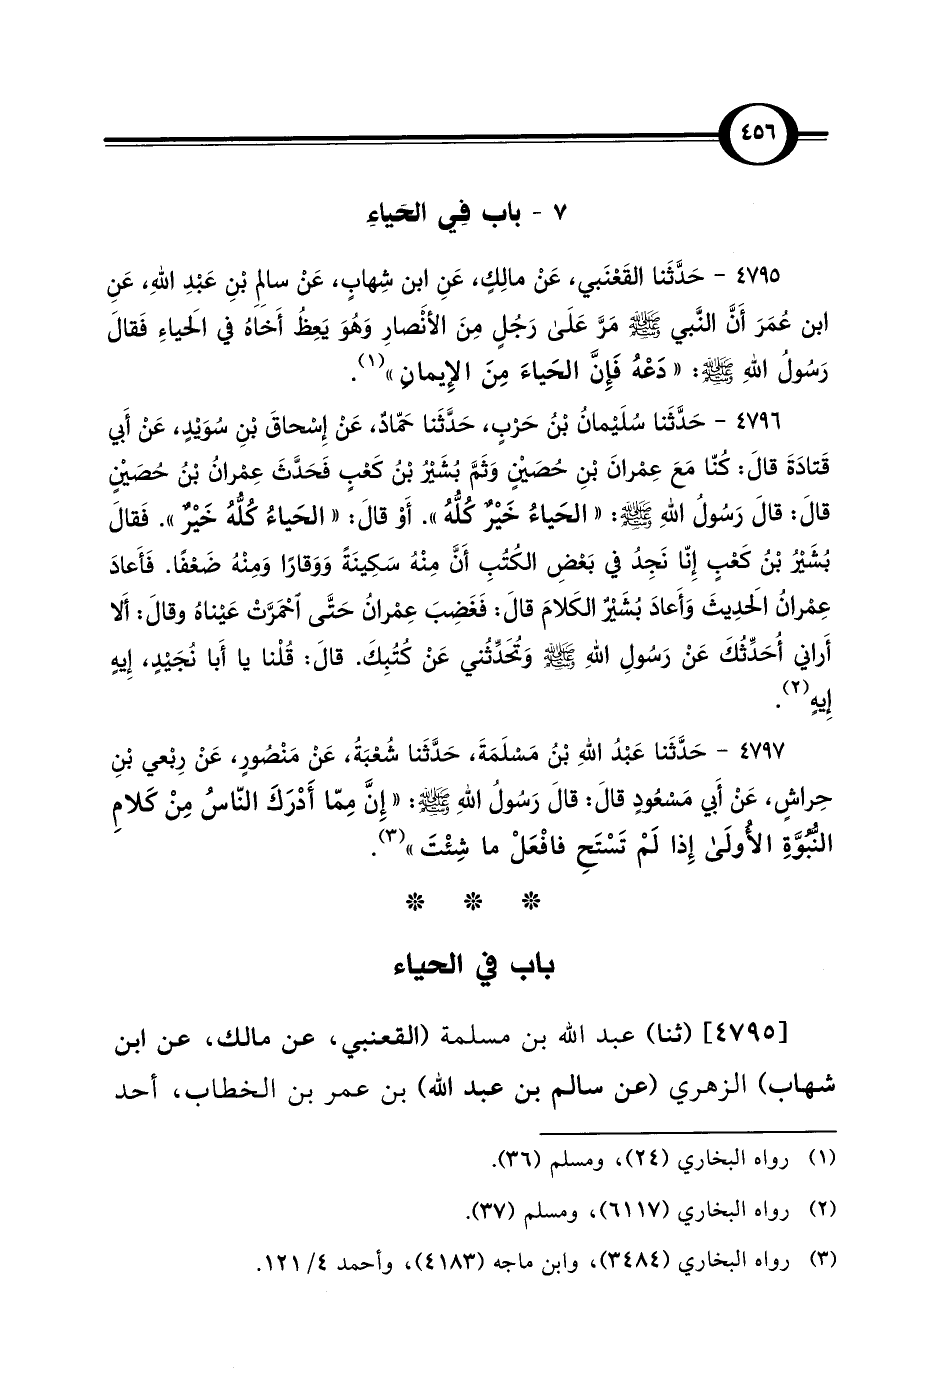 ٤٥٦
٧ - باب فِي الحَياءِ
٤٧٩٥ - حَدَّثَنا القَعْنَبي، عَنْ مالِكٍ، عَنِ ابن شِهابٍ، عَنْ سالِمِ بْنِ عَبْدِ اللهِ، عَنِ
ابن عُمَرَ أَنَّ النَّبي ﷺ مَرَّ عَلَىٰ رَجُلٍ مِنَ الأَنْصارِ وَهُوَ يَعِظُ أَخاهُ في الَحياءِ فَقالَ
رَسُولُ اللهِ ﷺ: « دَعْهُ فَإِنَّ الحَياءَ مِنَ الإِيمانِ »(١).
٤٧٩٦ - حَدَّثَنا سُلَيْمانُ بْنُ حَرْبٍ، حَدَّثَنا حَمّادٌ، عَنْ إِسْحاقَ بْنِ سُوَيْدٍ، عَنْ أَبي
قَتادَةَ قالَ: كُنّا مَعَ عِمْرانَ بْنِ حُصَيْنٍ وَثَمَّ بُشَيْرُ بْنُ كَعْبٍ فَحَدَّثَ عِمْرانُ بْنُ حُصَيْنٍ
قالَ: قالَ رَسُولُ اللهِ ﷺ: « الحَياءُ خَيْرٌ كُلُّهُ ». أَوْ قالَ: « الحَياءُ كُلُّهُ خَيْرٌ ». فَقالَ
بُشَيْرُ بْنُ كَعْبٍ إِنّا نَجِدُ في بَعْضِ الكُتُبِ أَنَّ مِنْهُ سَكِينَةً وَوَقارًا وَمِنْهُ ضَعْفًا. فَأَعادَ
عِمْرانُ الَحدِيثَ وَأَعادَ بُشَيْرٌ الكَلامَ قالَ: فَغَضِبَ عِمْرانُ حَتَّى ٱحْمَرَّتْ عَيْناهُ وقالَ: أَلا
أَراني أُحَدِّثُكَ عَنْ رَسُولِ اللهِ ﷺ وَتُحَدِّثُني عَنْ كُتُبِكَ. قالَ: قُلْنا يا أَبا نُجَيْدٍ، إِيهٍ
إِيهٍ(٢).
٤٧٩٧ - حَدَّثَنا عَبْدُ اللهِ بْنُ مَسْلَمَةَ، حَدَّثَنا شُعْبَةُ، عَنْ مَنْصُورٍ، عَنْ رِبْعي بْنِ
حِراشٍ، عَنْ أَبي مَسْعُودٍ قالَ: قالَ رَسُولُ اللهِ ﷺ: « إِنَّ مِمّا أَدْرَكَ النّاسُ مِنْ كَلامِ
النُّبُوَّةِ الأُولَىٰ إِذا لَمْ تَسْتَحِ فافْعَلْ ما شِئْتَ »(٣).
* * *
باب في الحياء
[٤٧٩٥] (ثنا) عبد الله بن مسلمة (القعنبي، عن مالك، عن ابن
شهاب) الزهري (عن سالم بن عبد الله) بن عمر بن الخطاب، أحد
(١) رواه البخاري (٢٤)، ومسلم (٣٦).
(٢) رواه البخاري (٦١١٧)، ومسلم (٣٧).
(٣) رواه البخاري (٣٤٨٤)، وابن ماجه (٤١٨٣)، وأحمد ٤/ ١٢١.